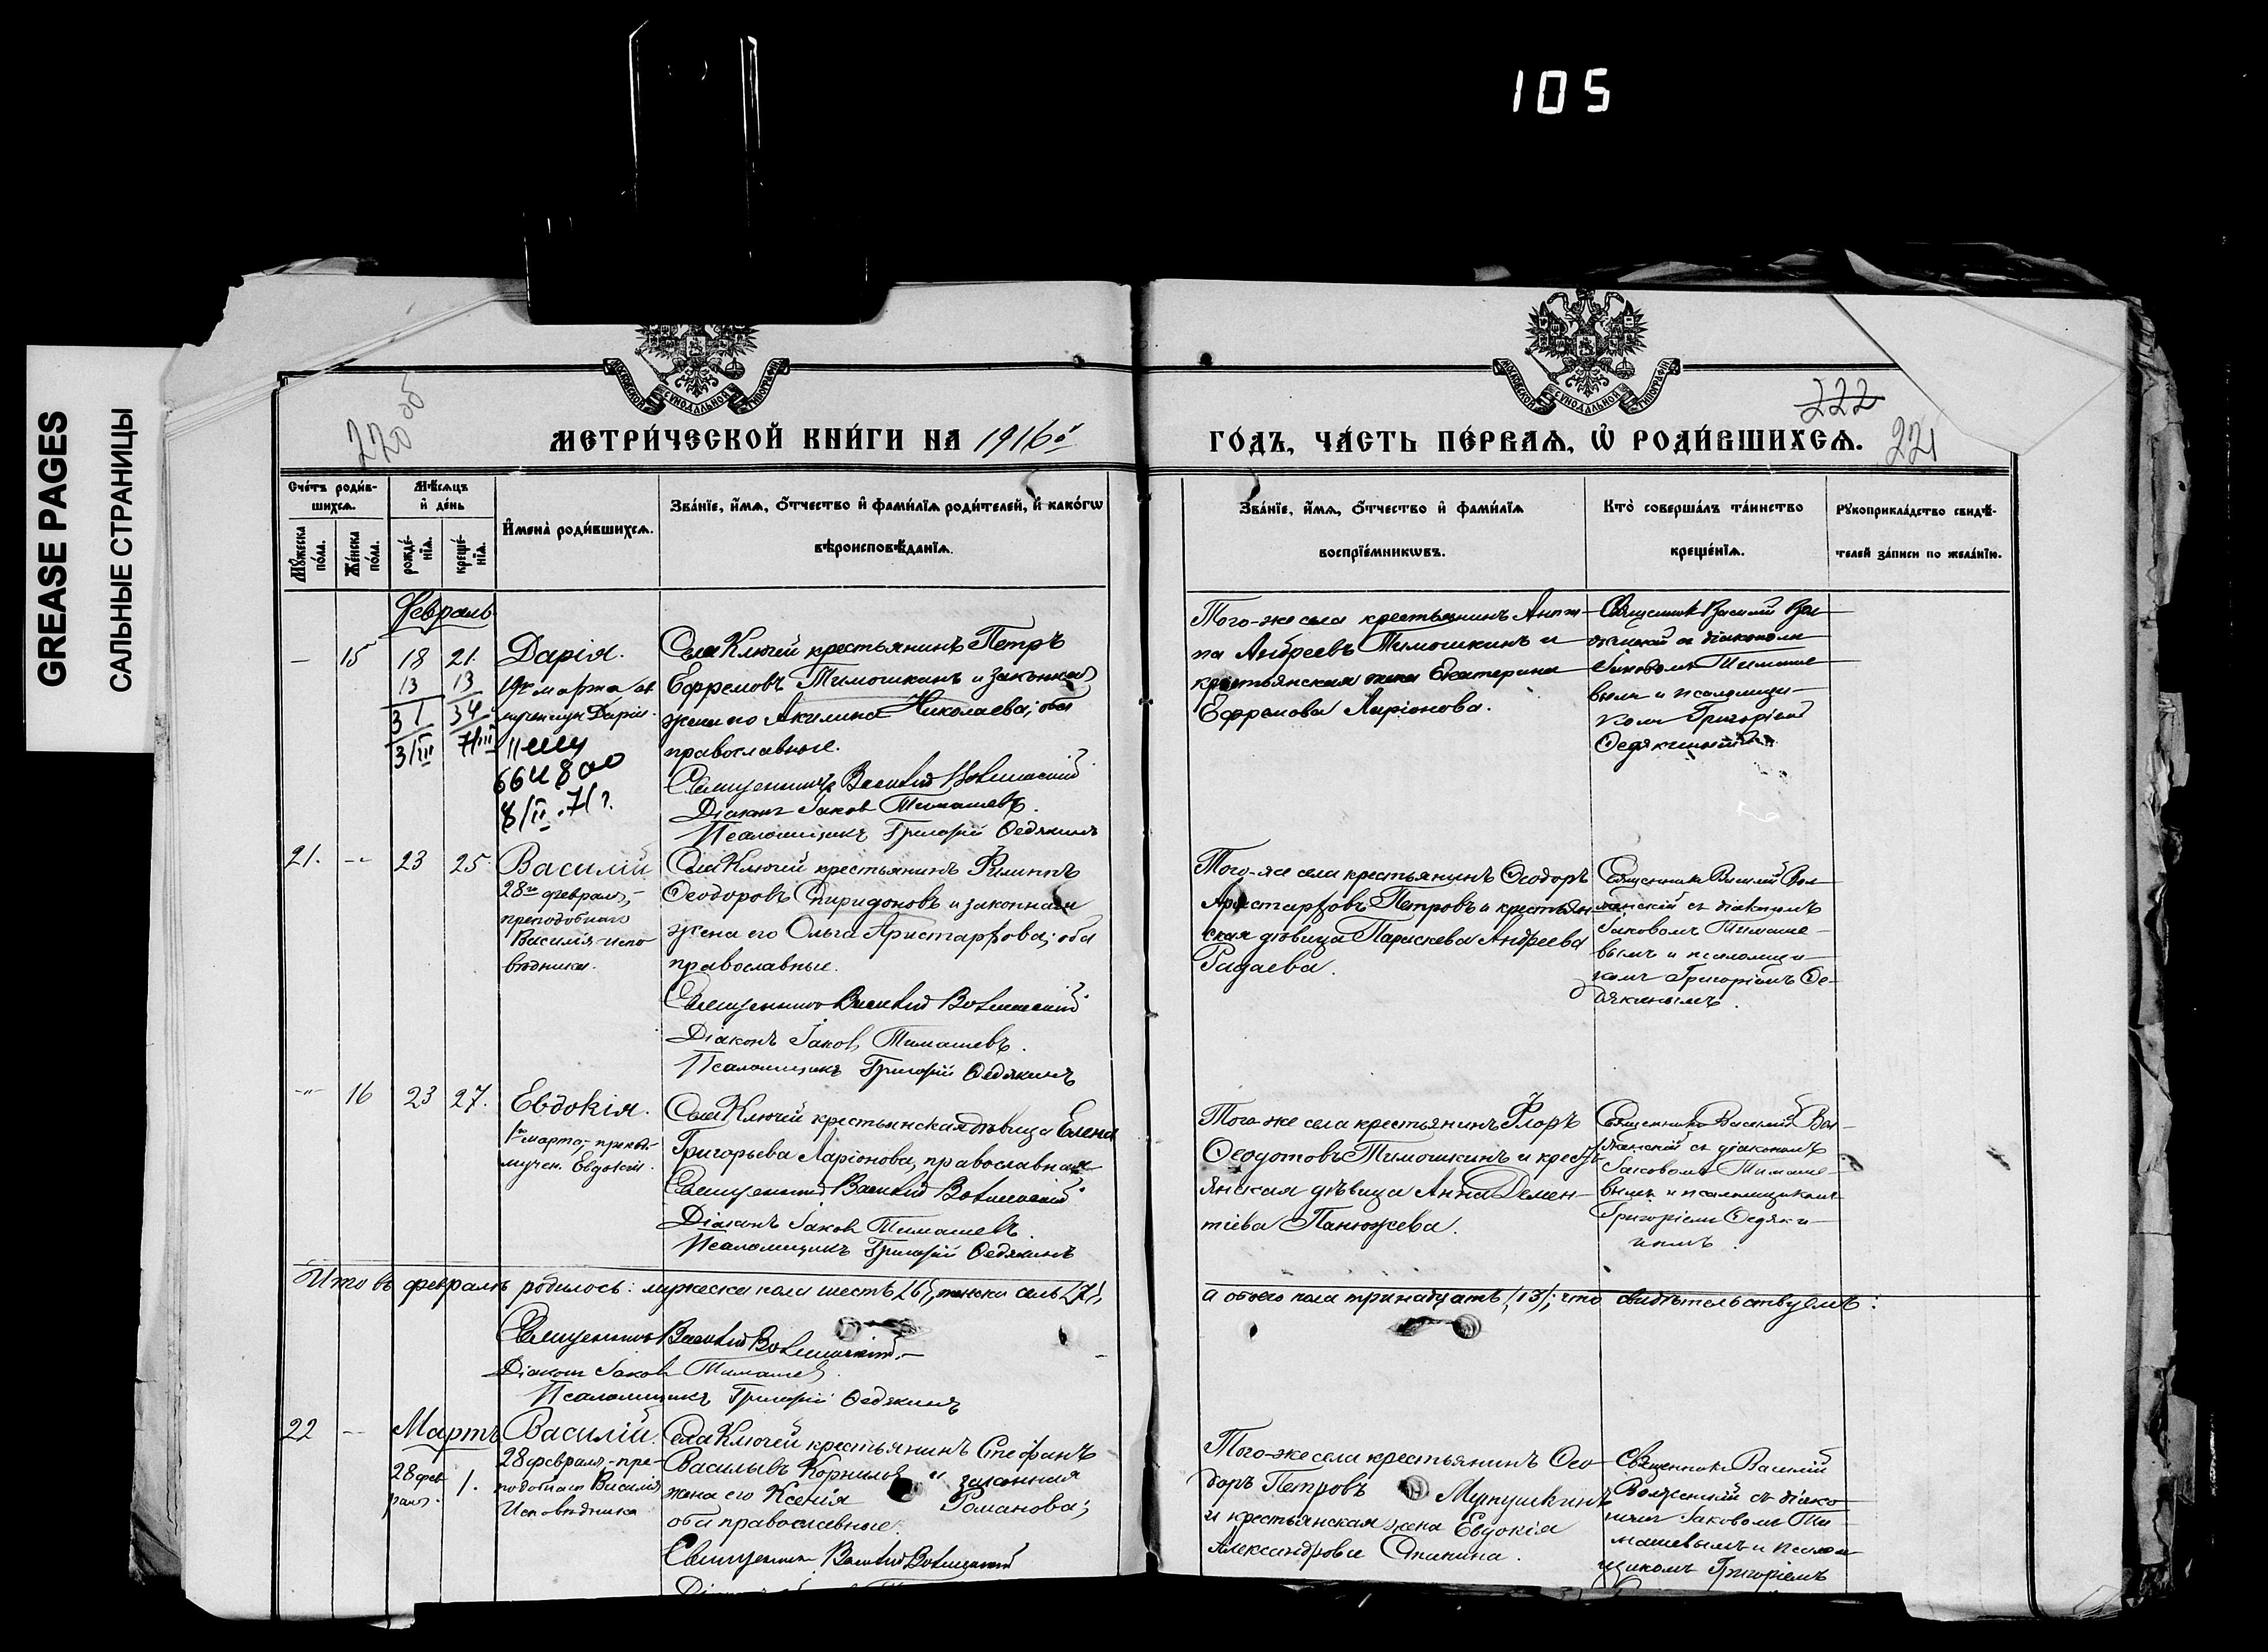 105
GREASE PAGES
САЛЬНЫЕ СТРАНИЦЫ
МОСКОВСКОЙ СУНОДАЛЬНОЙ ТИПОГРАФІИ
МОСКОВСКОЙ СУНОДАЛЬНОЙ ТИПОГРАФІИ
220
222
221
МЕТРИ́ЧЕСКОЙ КНИ́ГИ НА 1916й
ГО́ДЪ, ЧА́СТЬ ПЕ́РВАѦ, Ѡ҆ РОДИ́ВШИХСѦ.
Сче́тъ роди́в-
шихсѧ.
Мѣ́сѧцъ
и҆ де́нь
Мꙋ́жеска по́ла.
Же́нска по́ла.
рожде́-нїѧ.
креще́-нїѧ.
И҆мена̀ роди́вшихсѧ.
Зва́нїе, и҆́мѧ, о҆́тчество и҆ фами́лїѧ роди́телей, и҆ како́гѡ
вѣроисповѣ́данїѧ.
Зва́нїе, и҆́мѧ, о҆́тчество и҆ фами́лїѧ
воспрїе́мникѡвъ.
Кто̀ соверша́лъ та́инство
креще́нїѧ.
Рꙋкоприкла́дство свидѣ́-
телей за́писи по жела́нїю.
Февраль
— 15 18 21. Дарія.
13 13 19го марта св.
31 34 мученицы Даріи.
3/III 7/III
8/II.71г.
Села Ключей крестьянинъ Петръ
Ефремовъ Тимошкинъ и законная
жена его Акилина Николаева; оба
православные.
Священникъ Василій
Діаконъ Іаковъ Тимашевъ.
Псаломщикъ Григорій Ѳедякинъ
Того-же села крестьянинъ Анти-
па Андреевъ Тимошкинъ и
крестьянская жена Екатерина
Ефремова Ларіонова.
Священникъ Василій
съ діакономъ
Іаковомъ Тимаше-
вымъ и псаломщи-
комъ Григоріемъ
Ѳедякинымъ
21. -- 23 25. Василій
28го февраля,-
преподобнаго
Василія испо-
вѣдника.
Села Ключей крестьянинъ Филиппъ
Ѳеодоровъ Спиридоновъ и законная
жена его Ольга Аристархова; оба
православные.
Священникъ Василій
Діаконъ Іаковъ Тимашевъ.
Псаломщикъ Григорій Ѳедякинъ
Того-же села крестьянинъ Ѳеодоръ
Аристарховъ Петровъ и крестьян-
ская дѣвица Параскева Андреева
Радаева.
Священникъ Василій
съ діакономъ
Іаковомъ Тимаше-
вымъ и псаломщи-
комъ Григоріемъ Ѳе-
дякинымъ.
-"- 16 23 27. Евдокія.
1го марта,- препод.-
мучен. Евдокіи.
Села Ключей крестьянская дѣвица Елена
Григорьева Ларіонова, православная
Священникъ Василій
Діаконъ Іаковъ Тимашевъ.
Псаломщикъ Григорій Ѳедякинъ
Того-же села крестьянинъ Флоръ
Ѳеодотовъ Тимошкинъ и кресть-
янская дѣвица Анна Демен-
тіева Панюжева.
Священникъ Василій
съ діакономъ
Іаковомъ Тимаше-
вымъ и псаломщикомъ
Григоріемъ Ѳедяки-
нымъ.
Итого въ февралѣ родилось: мужеска пола шесть /6/, женска семь /7/,
а обоего пола тринадцать /13/; что свидѣтельствуемъ:
Священникъ Василій
Діаконъ Іаковъ Тимашевъ
Псаломщикъ Григорій Ѳедякинъ
22 -- Мартъ Василій.
28 фев-
раля. 1.
28 февраля,- пре-
подобнаго Василія
Исповѣдника
Села Ключей крестьянинъ Стефанъ
Васильевъ Корниловъ и законная
жена его Ксенія Романова;
оба православные.
Священникъ Василій
Того-же села крестьянинъ Ѳео-
доръ Петровъ
и крестьянская жена Евдокія
Александрова Спанина.
Священникъ Василій
съ діако-
номъ Іаковомъ Ти-
машевымъ и псалом-
щикомъ Григоріемъ